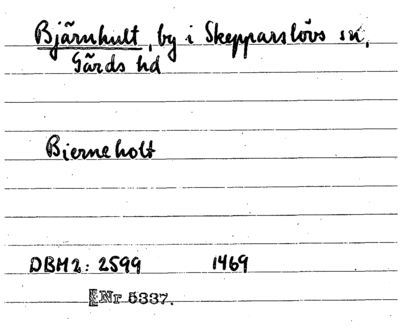 Bjärnhult, by i Skepparslövs sn,
Gärds hd
Bierneholt
DBM2: 2599 1469
Nr 5337.